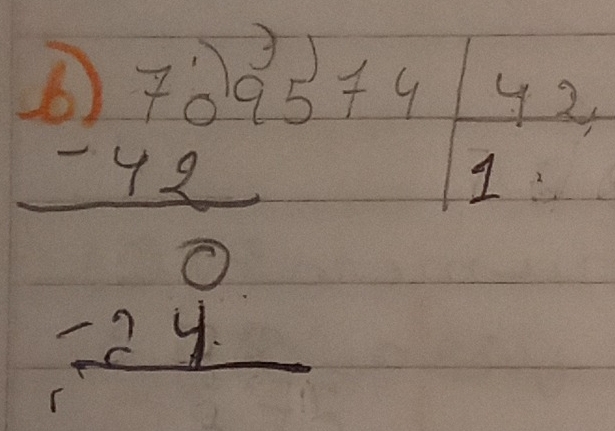 b) 709574 | 42
- 42 1
0
- 24